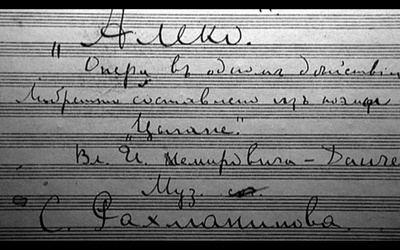 „Алеко".
Опера въ одномъ дѣйствіи
Либретто составлено изъ поэмы
„Цыгане".
Вл. И. Немировича-Данче
Муз.
С. Рахманинова.